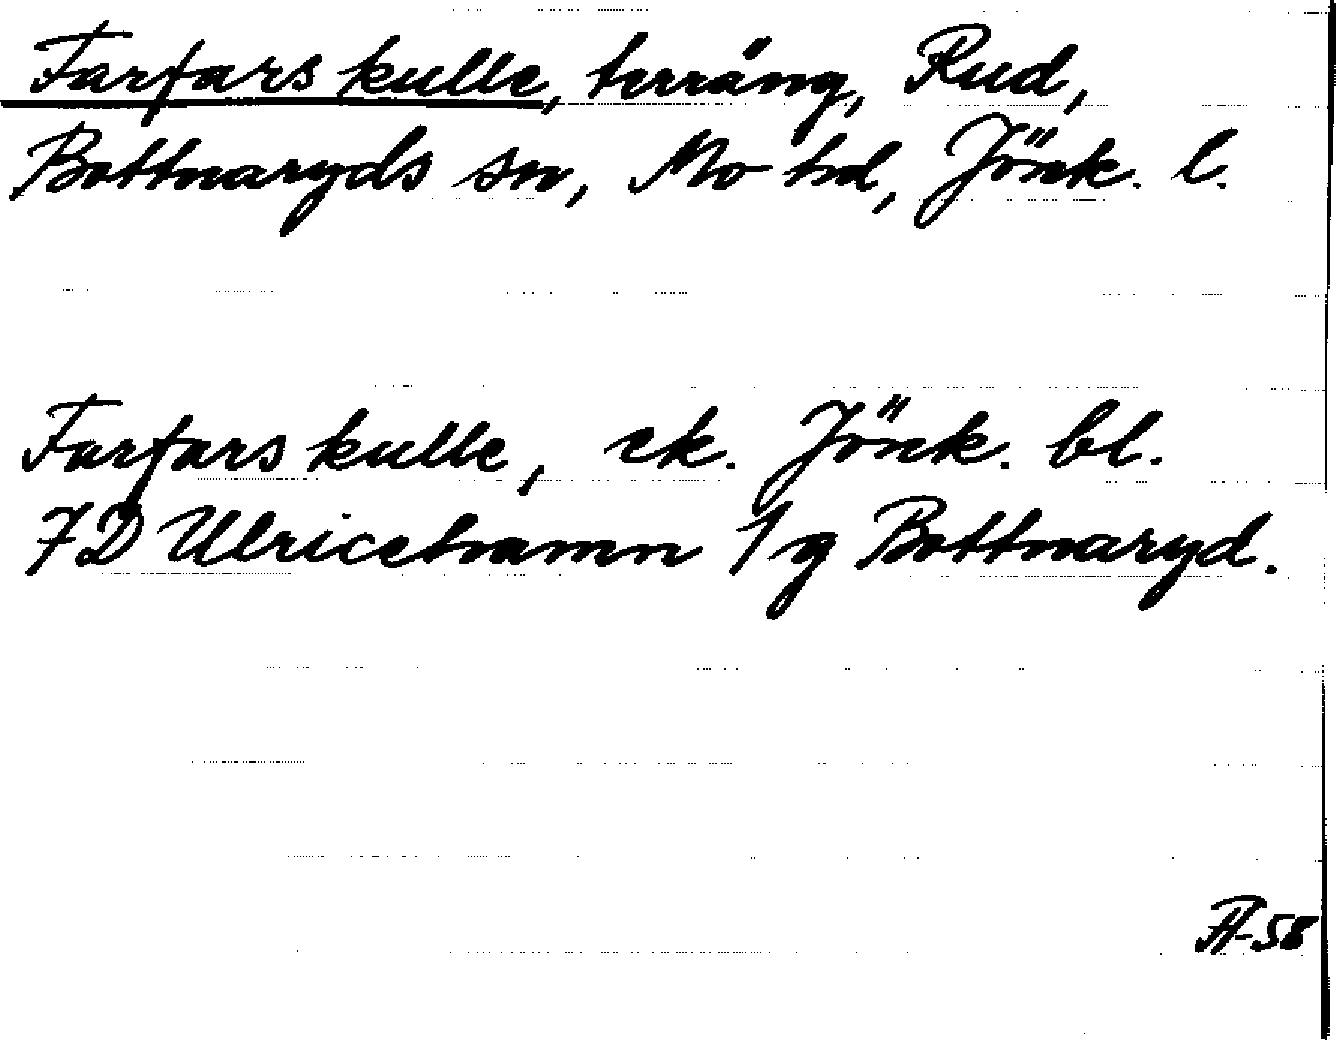 Farfars kulle, terräng, Rud,
Bottnaryds sn, Mo hd, Jönk. l.
Farfars kulle, ek. Jönk. bl.
7D Ulricehamn 1 g Bottnaryd.